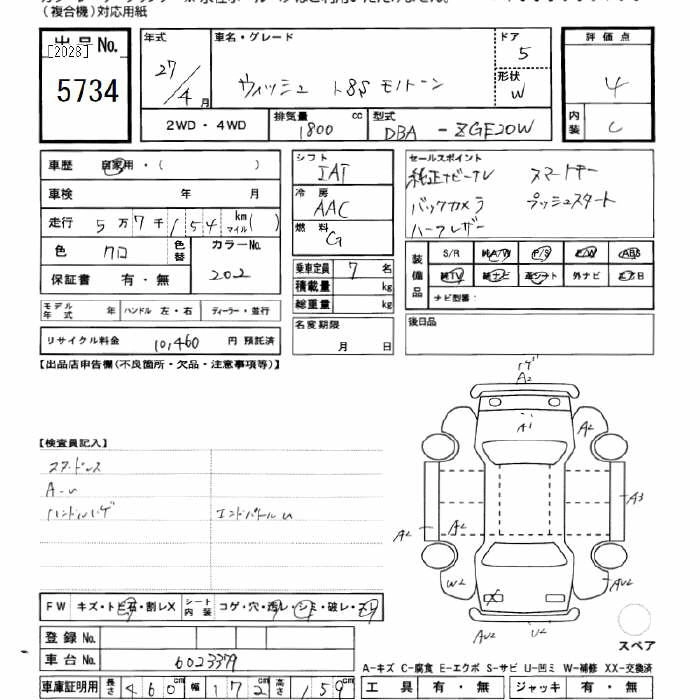 (複合機)対応用紙
出品No.
[2028]
5734
年式 車名・グレード ドア
27/4月 ウィッシュ 1.8S モノトーン 5
形状 W
2WD・4WD 排気量 1800 cc 型式 DBA-ZGE20W
評価点 4
内装 C
車歴 自家用・( )
車検 年 月
走行 5万7千154 km マイル( )
色 クロ 色替 カラーNo. 202
保証書 有・無
シフト IAT
冷房 AAC
燃料 G
乗車定員 7 名
積載量 kg
総重量 kg
セールスポイント
純正ナビ・テレ スマートキー
バックカメラ プッシュスタート
ハーフレザー
装備品 S/R A/W P/S P/W ABS
純TV 純ナビ 革シート 外ナビ エアB
ナビ型番:
モデル年式 年 ハンドル 左・右 ディーラー・並行
名変期限 月 日
後日品
リサイクル料金 10,460 円 預託済
【出品店申告欄(不良箇所・欠品・注意事項等)】
ハゲ
A2
A1
A2
【検査員記入】
スタッドレス
A・U
ハンドルハゲ エンドパネルU
A3
A2 A2
W2 AU2
X
AU2 U2
スペア
FW キズ・トビ石・割レX シート内装 コゲ・穴・汚レ・シミ・破レ・スレ
登録No.
車台No. 6023379
A-キズ C-腐食 E-エクボ S-サビ U-凹ミ W-補修 XX-交換済
車庫証明用 長さ 460cm 幅 172cm 高さ 159cm
工具 有・無 ジャッキ 有・無